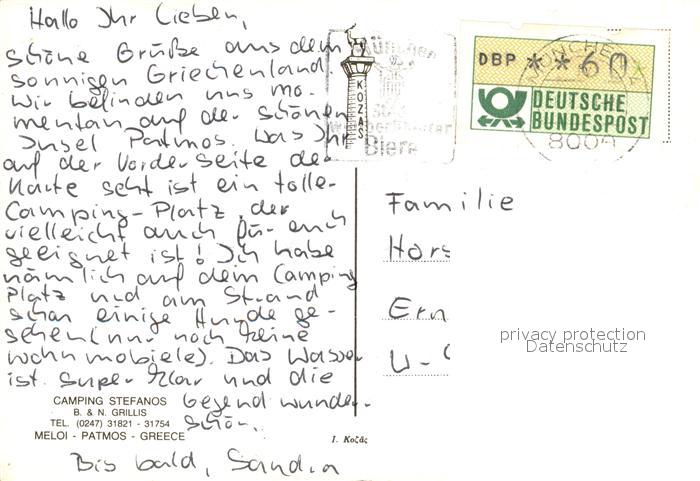 Hallo Ihr Lieben,
schöne Grüße aus dem
sonnigen Griechenland.
Wir befinden uns mo-
mentan auf der schönen
Insel Patmos. Was Ihr
auf der Vorderseite der
Karte seht ist ein toller
Camping-Platz, der
vielleicht auch für euch
geeignet ist! Ich habe
nämlich auf dem Camping
Platz und am Strand
schon einige Hunde ge-
sehen (nur noch keine
wohnmobiele). Das Wasser
ist super klar und die
Gegend wunder-
schön.
Bis bald, Sandra
CAMPING STEFANOS
B. & N. GRILLIS
TEL. (0247) 31821 - 31754
MELOI - PATMOS - GREECE
KOZAS
I. Κοζάς
München
Biere
DBP **60
DEUTSCHE
BUNDESPOST
MÜNCHEN
Familie
Hors
Ern
privacy protection
Datenschutz